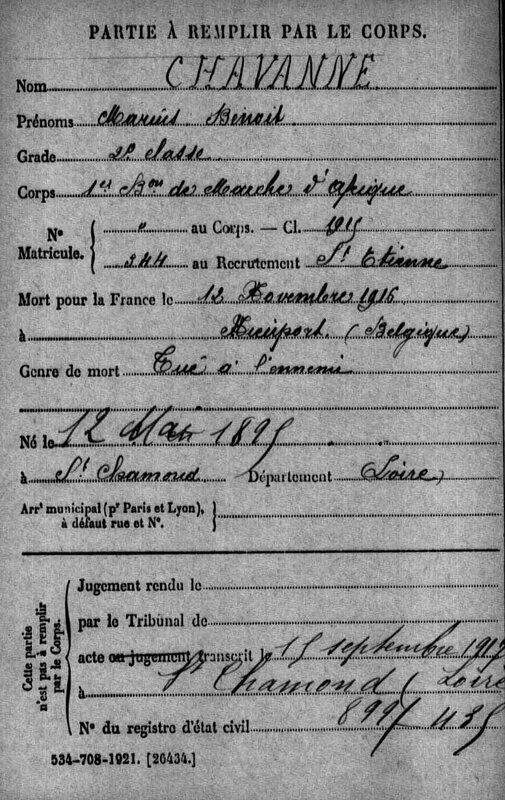 PARTIE À REMPLIR PAR LE CORPS.
Nom CHAVANNE
Prénoms Marius Benoit
Grade 2e classe
Corps 1er Bon de Marche d'Afrique
No Matricule. { " au Corps. — Cl. 1915
344 au Recrutement St Etienne
Mort pour la France le 12 Novembre 1916
à Nieuport (Belgique)
Genre de mort Tué à l'ennemi
Né le 12 Mai 1895
à St Chamond Département Loire
Arrt municipal (pr Paris et Lyon), à défaut rue et No.
Cette partie n'est pas à remplir par le Corps.
Jugement rendu le
par le Tribunal de
acte ou jugement transcrit le 15 septembre
à St Chamond (Loire
No du registre d'état civil 899/435
534-708-1921. [26434.]